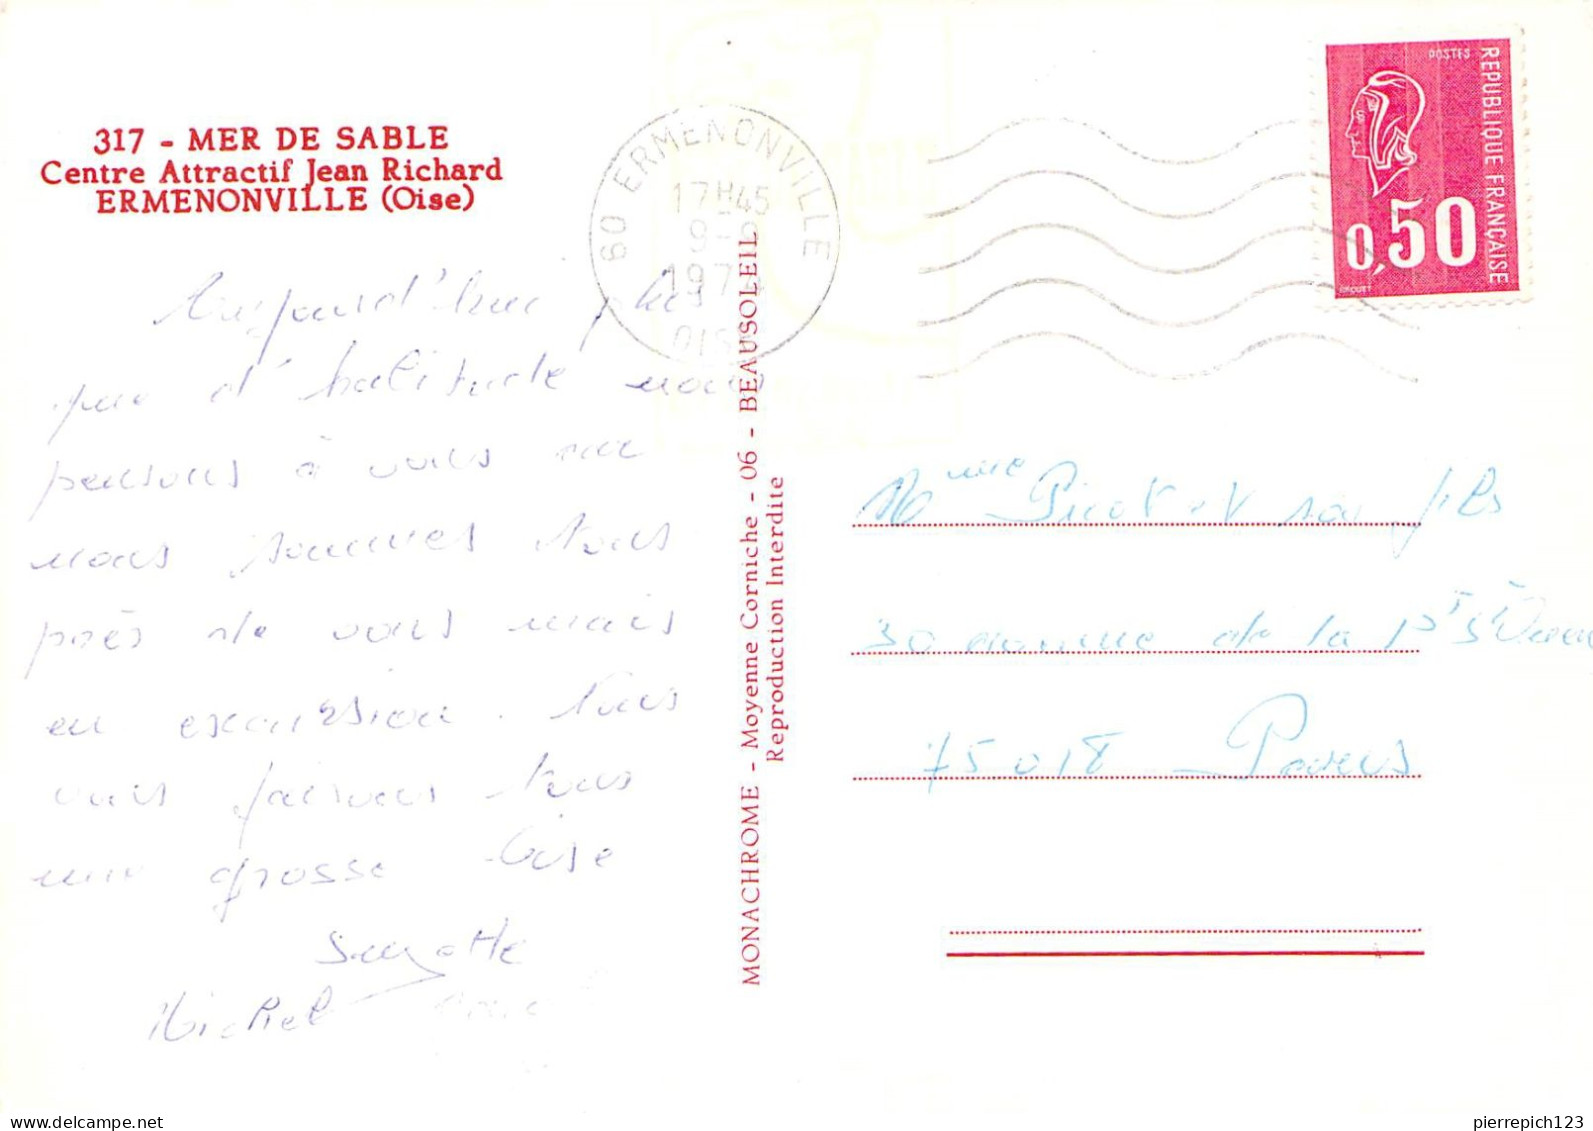 317 - MER DE SABLE
Centre Attractif Jean Richard
ERMENONVILLE (Oise)
60 ERMENONVILLE
17H45
9-
197
OISE
POSTES
REPUBLIQUE FRANÇAISE
0,50
Aujourd'hui plus
que d'habitude nous
pensons à vous car
nous sommes tous
près de vous mais
en excursion. Nous
vous faisons tous
une grosse bise
Suzette
Michel
MONACHROME - Moyenne Corniche - 06 - BEAUSOLEIL
Reproduction Interdite
Mme Picot et son fils
30 avenue de la Pte
75018 Paris
pierrepich123